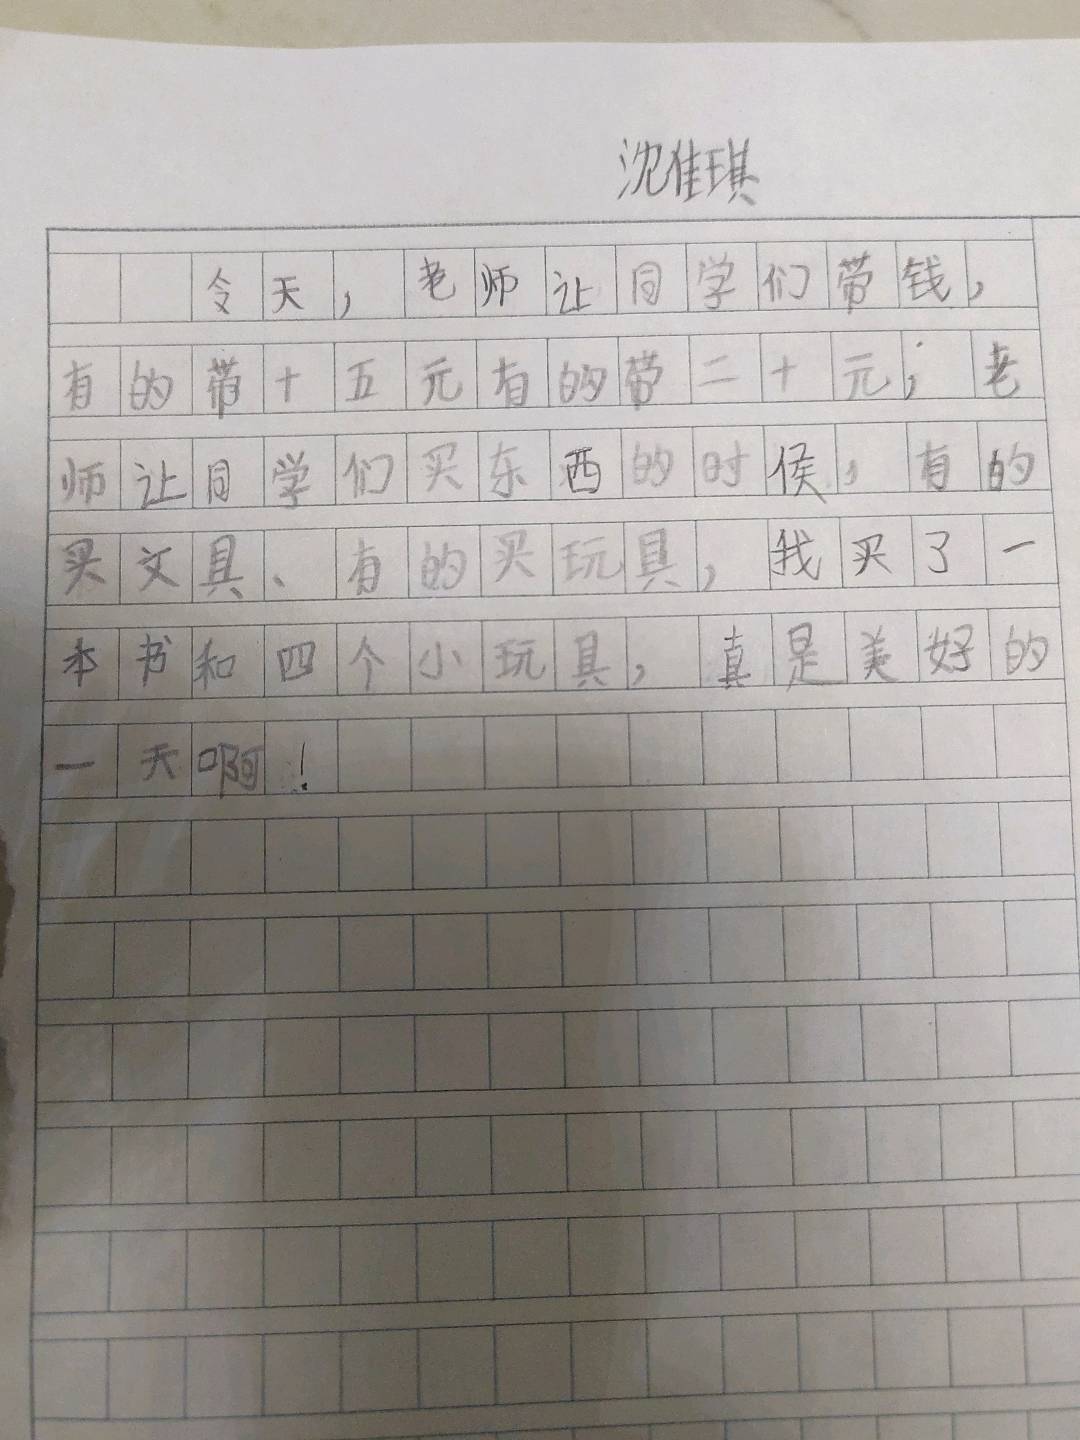 沈佳琪
今天，老师让同学们带钱，
有的带十五元有的带二十元；老
师让同学们买东西的时候，有的
买文具、有的买玩具，我买了一
本书和四个小玩具，真是美好的
一天啊！